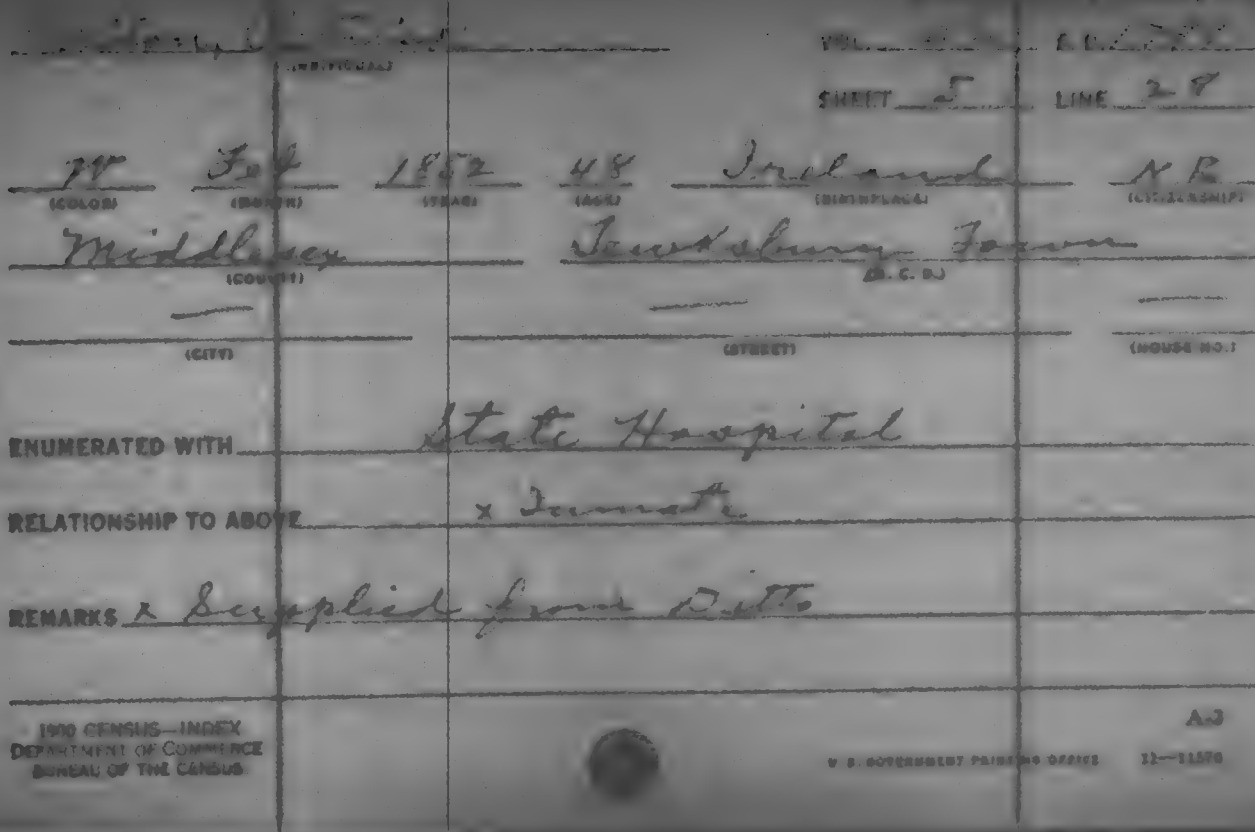 VOL. E.D.
(INDIVIDUAL)
SHEET 5 LINE 28
W Feb 1852 48 Ireland N R
(COLOR) (MONTH) (YEAR) (AGE) (BIRTHPLACE) (CITIZENSHIP)
Middlesex Tewksbury Town
(COUNTY) (M. C. D.)
— — —
(CITY) (STREET) (HOUSE NO.)
ENUMERATED WITH State Hospital
RELATIONSHIP TO ABOVE x Inmate
REMARKS x Supplied from Ditto
1900 CENSUS—INDEX
DEPARTMENT OF COMMERCE
BUREAU OF THE CENSUS
A-3
U. S. GOVERNMENT PRINTING OFFICE 11—11570